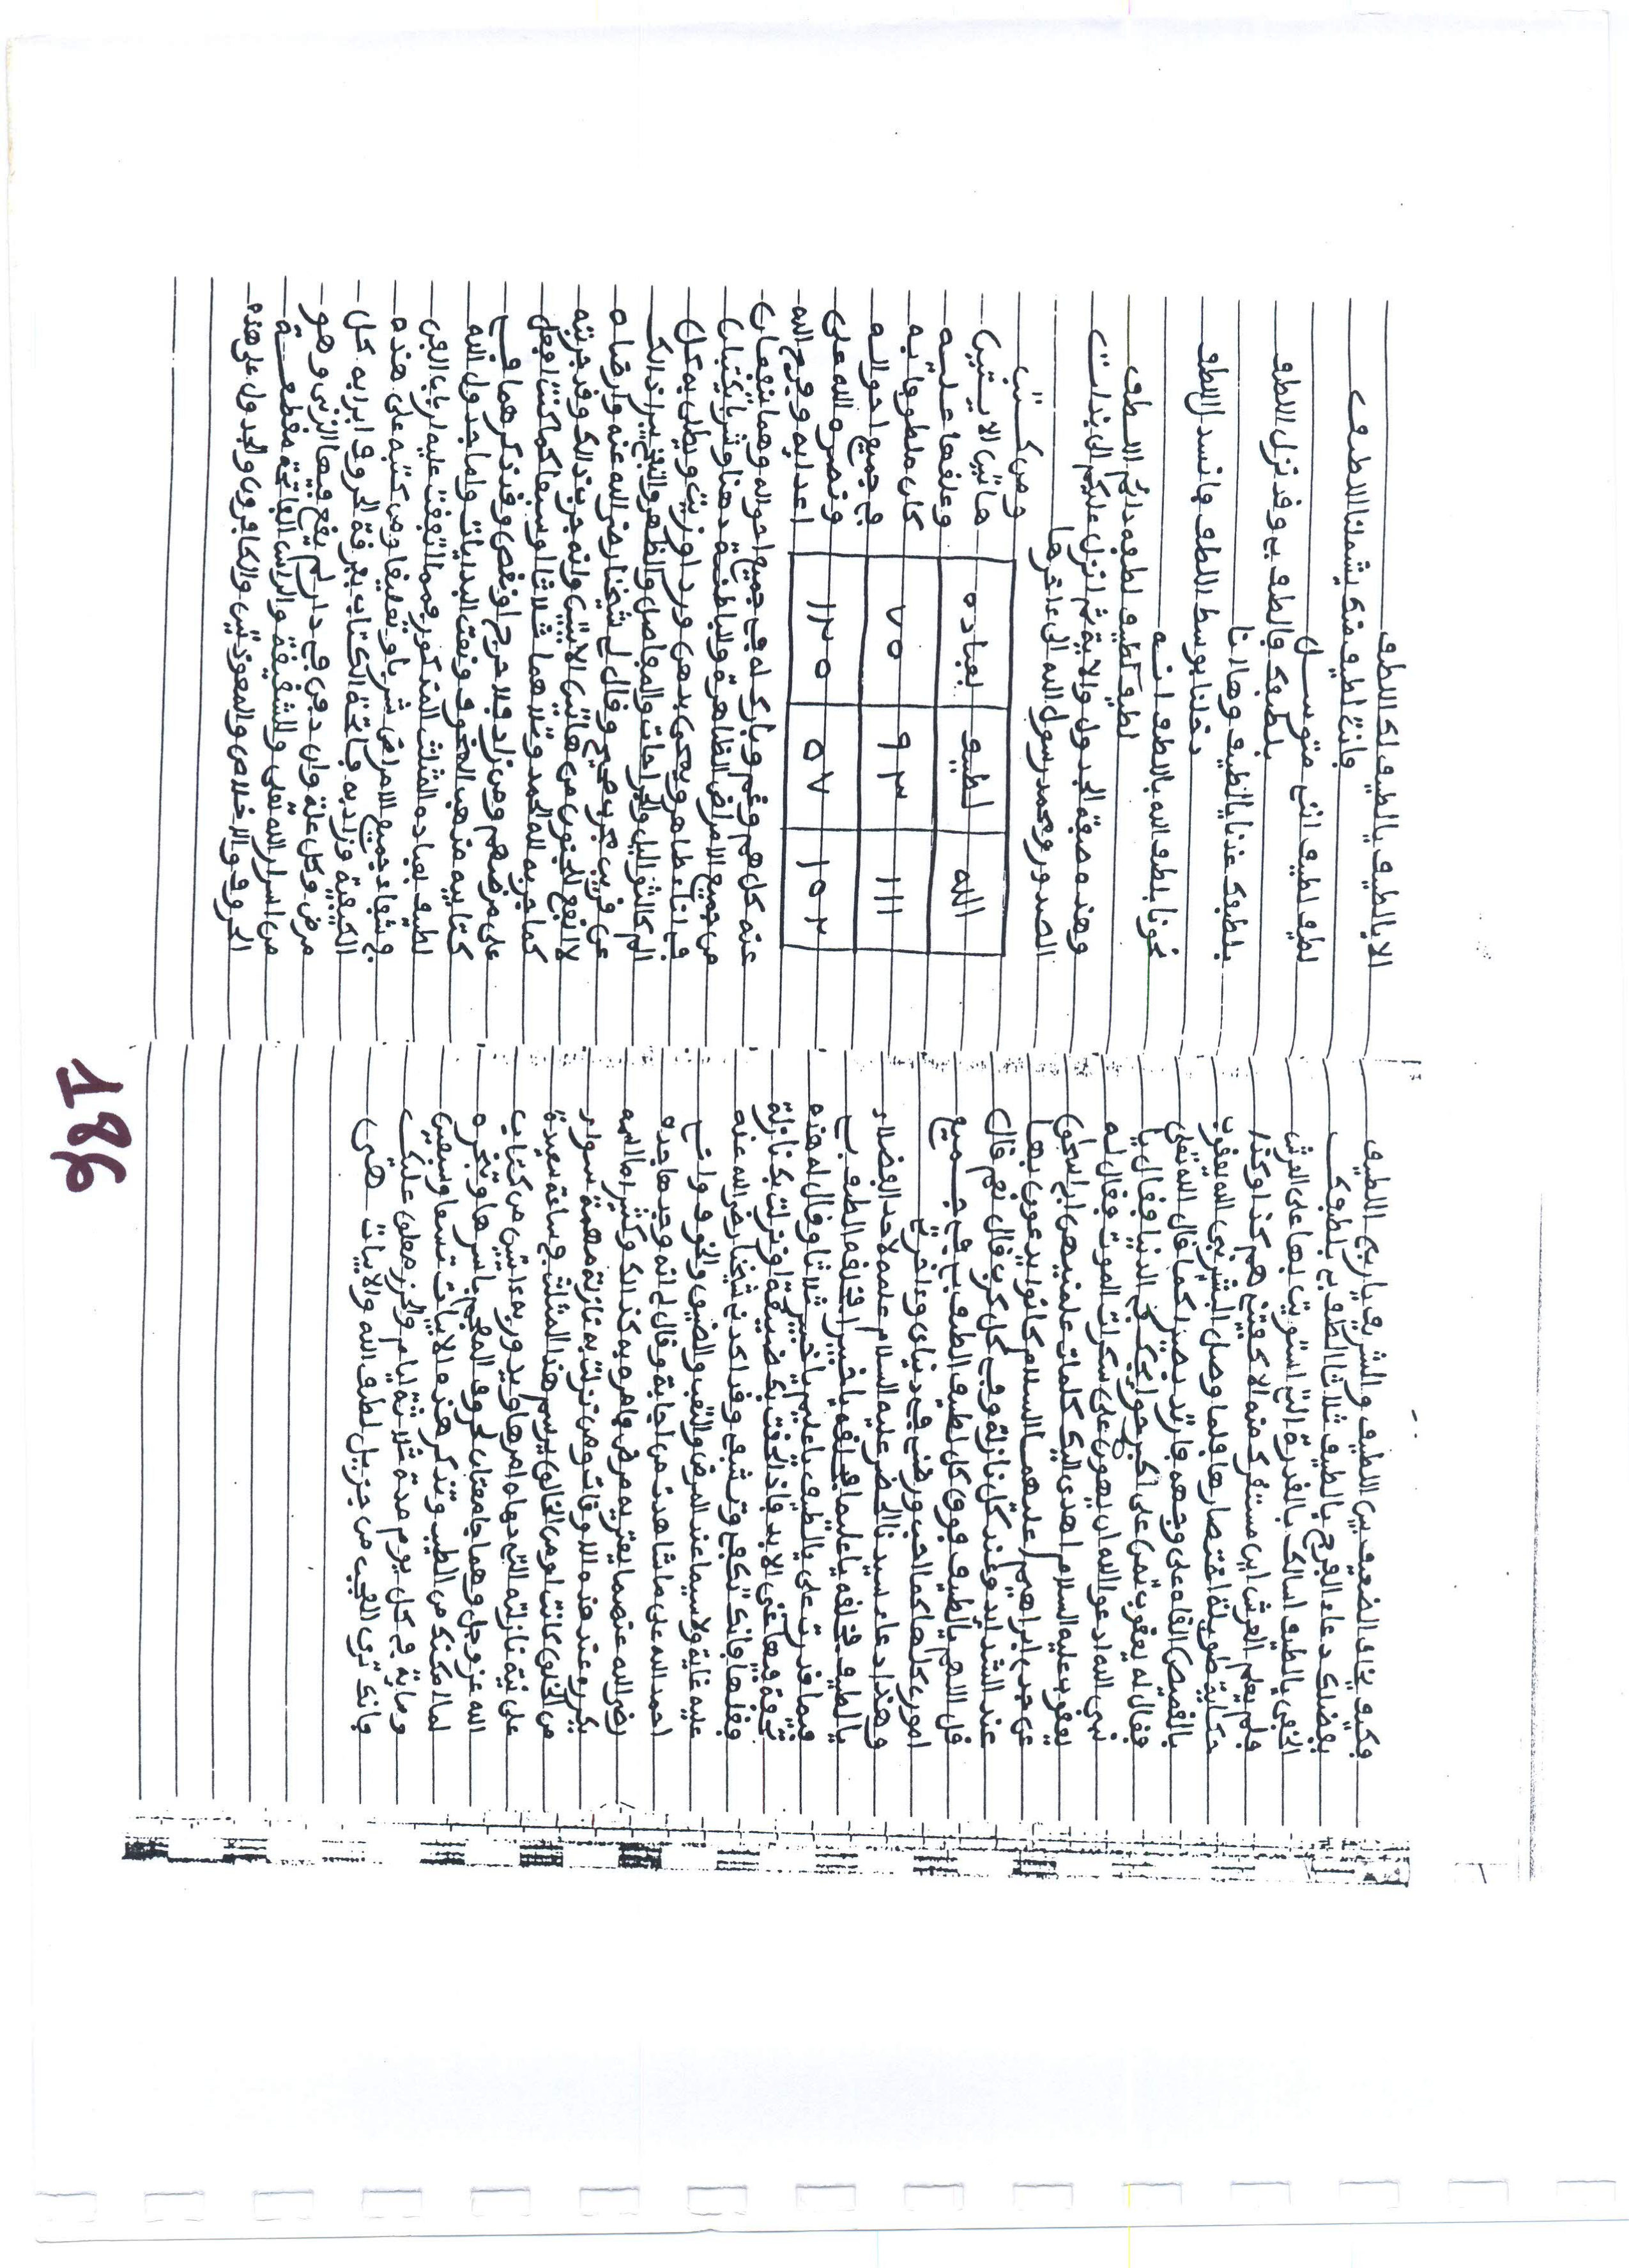 وكيف يخاف الضعيف بين اللطيف والشريف ياربي اللطيف
بفضلك دعاء الفرج يالطيف ثلاثا الطف بي بلطفك
الخفي يالطيف اسالك بالقدرة التي استويت بها على العرش
فلم يعلم العرش اين مستقرك منه الا كفيتني هم كذا وكذا
حكاية طويلة اقتصارها فلما وصل البشير نبي الله يعقوب
بالقميص القاه على وجهه فارتد بصيرا كما قال الله تعلى
فقال له يعقوب تمن على اكبر حوايجك في الدنيا فقال يا
نبي الله ادعوا الله ان يهون على سكرات الموت فقال له
يعقوب عليه السلام اهدى اليك كلمات علمنيهن ابي اسحق
عن جدي ابراهيم عليهما السلام كانوا يدعون بها
عند الشدايد وعند كل نازلة وفي كل كرب فقال نعم قال
قل اللهم يالطيف فوق كل لطيف الطف بي في جميع
اموري كلها كما احب ورضني في دنياي وءاخرتي
وهذا دعاء سيدنا الخضر عليه السلام علمه لاحد الفضلاء
يالطيف بخلقه يا عليما بخلقه يا خبيرا بخلقه الطف بي
فيما قدرت على يالطيف يا عليم يا خبير ثلاثا وقال له هذه
تحفة فيها غنى الابد فاذا لحقتك ضيقة او نزلت بك نازلة
فقلها فانك تكفى وتشفى وقد اكد لي شيخنا رضي الله عنه
عليه غاية ولاسيما عند المرض والتعب والضيق والخوف وانى
احمد الله على ما شاهدت من اجابة وقال لي انه وجد ها جده
رضي الله عنه
يكرره عند هذه الاوقات ومن نزلت به نازلة مهمة سواء
من الخلق كانت او من الخالق يرسم هذا المثلث في ساعة سعيدة
على نية نازلته التي دهاه امرها ويدوربه ءايتين من كتاب
الله عز وجل وهما جامعتان لحروف المعجم باسرها وتبخره
لما امكنك من الطيب وتذكر هذه الابيات تسعا وسبعين
وماية في كل يوم مدة ثلاثة ايام والحرز معلق عليك
فانك ترى العجب من جزيل لطف الله والابيات هي
الا يالطيف يالطيف لك اللطف
فانت لطيف منك يشملنا اللطف
لطيف لطيف انني متوسل
بلطفك فالطف بي وقد نزل اللطف
بلطفك عذنا يالطيف وها انا
دخلنا بوسط اللطف وانسدل اللطف
نجونا بلطف الله باللطف انه
لطيف لطيف لطفه دائم اللطف
وهذه صفة الجدول والاية ثم انزل عليكم الى بذات
الصدور ومحمد رسول الله الى ءاخرها
ومن كتب
هاتين الايتين
وعلقها عليه
كان ملطوفا به
في جميع احواله
ونصره الله على
اعدايه وفرج الله
الله لطيف بعباده
١١١ ٩٣ ٧٥
١٠٢ ٥٧ ١٢٠
عنه كل هم وغم وبارك له في جميع احواله وهما ينفعان
من جميع الامراض الظاهرة والباطنة دهنا وشربا يكتبان
في اناء طاهر ويمحى بدهن ورد او زيت ويطلى به كل
الم كالثواليل والجراحات والمفاصل والظهر والتجبير اذ الك
عن قريب مجرب صحيح وقال لي شيخنا رضي الله عنه وارضاه
لا انفع للجنون من هاتين الايتين وانه جرب ذالك وقد جربته
كما جربه لله الحمد وتلاهما ثلاثا او سبعا كما كنت افعل
على مرضهم ومن زاد فلا حرج او نقص وقد ذكرهما في
كتابيه مذهب الخوف ونعت البدايات واما جدول الله
لطيف بعباده المثلث المذكور فمما اتفقت عليه ارباب الفن
في شفاء جميع الامراض شربا وتعليقا ومن كتبه على هذه
الكيفية وزاد به فاتحة الكتاب بفرقة الحروف ابرا به كل
مرض وكل علة وان دفن في دار لم يقع فيها الزنى وهو
من اسرار الله تعلى والشقيقة والراس الفاتحة مقطعة
الحروف والاخلاص والمعوذتين والكافرون والجدول على هذه
981